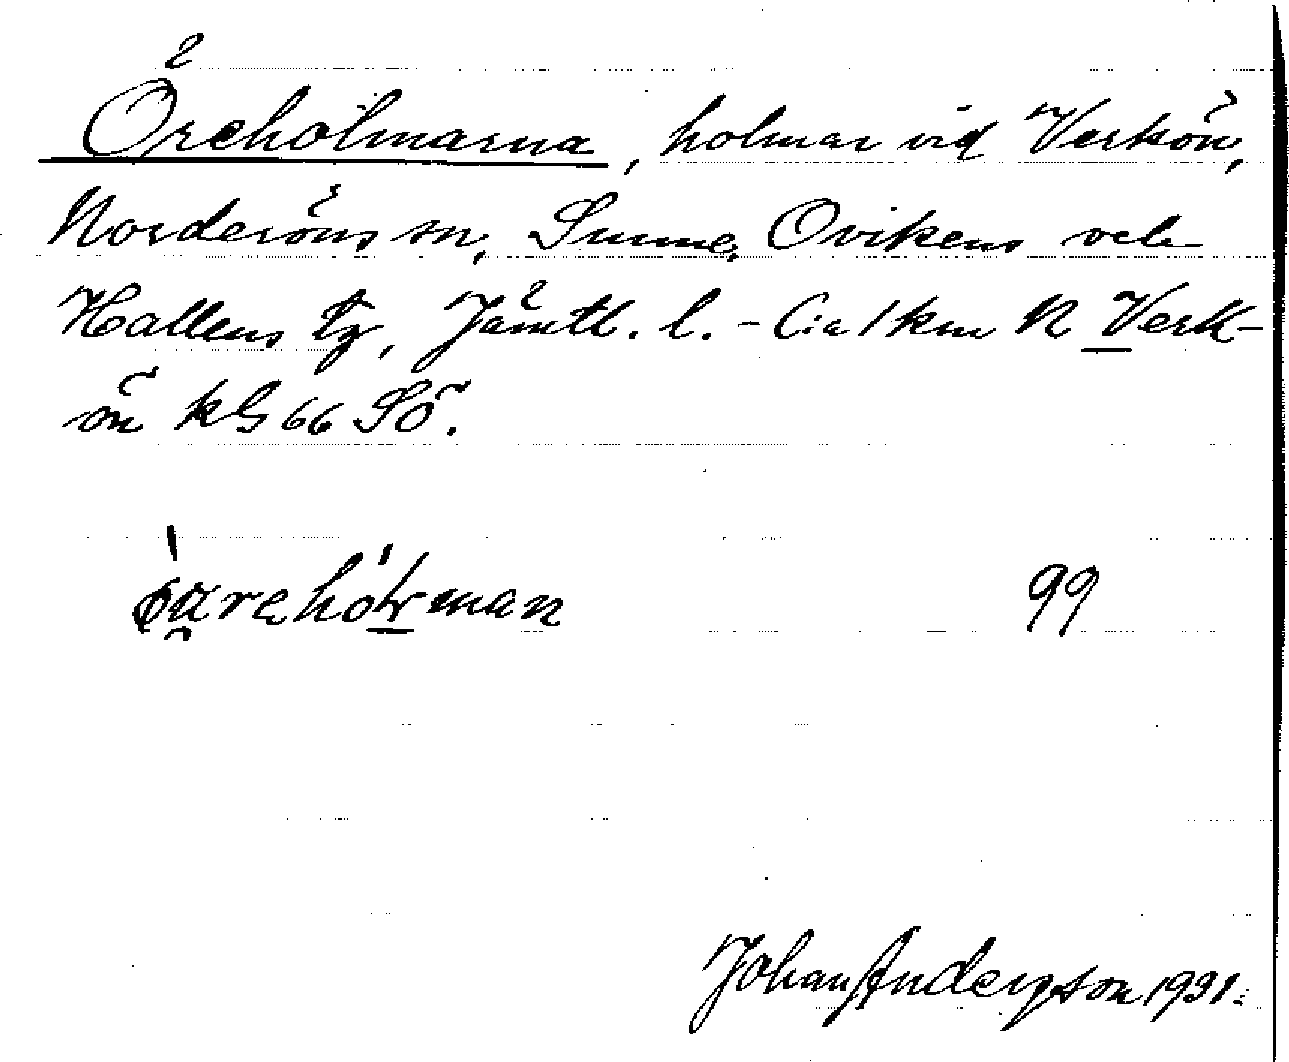 Öreholmarna, holmar vid Verkön,
Norderöns sn, Sunne, Ovikens och
Hallens tg, Jämtl. l. - C:a 1 km N Verk-
ön kbl 66 SÖ.
99
Johan Anderzson 1931.